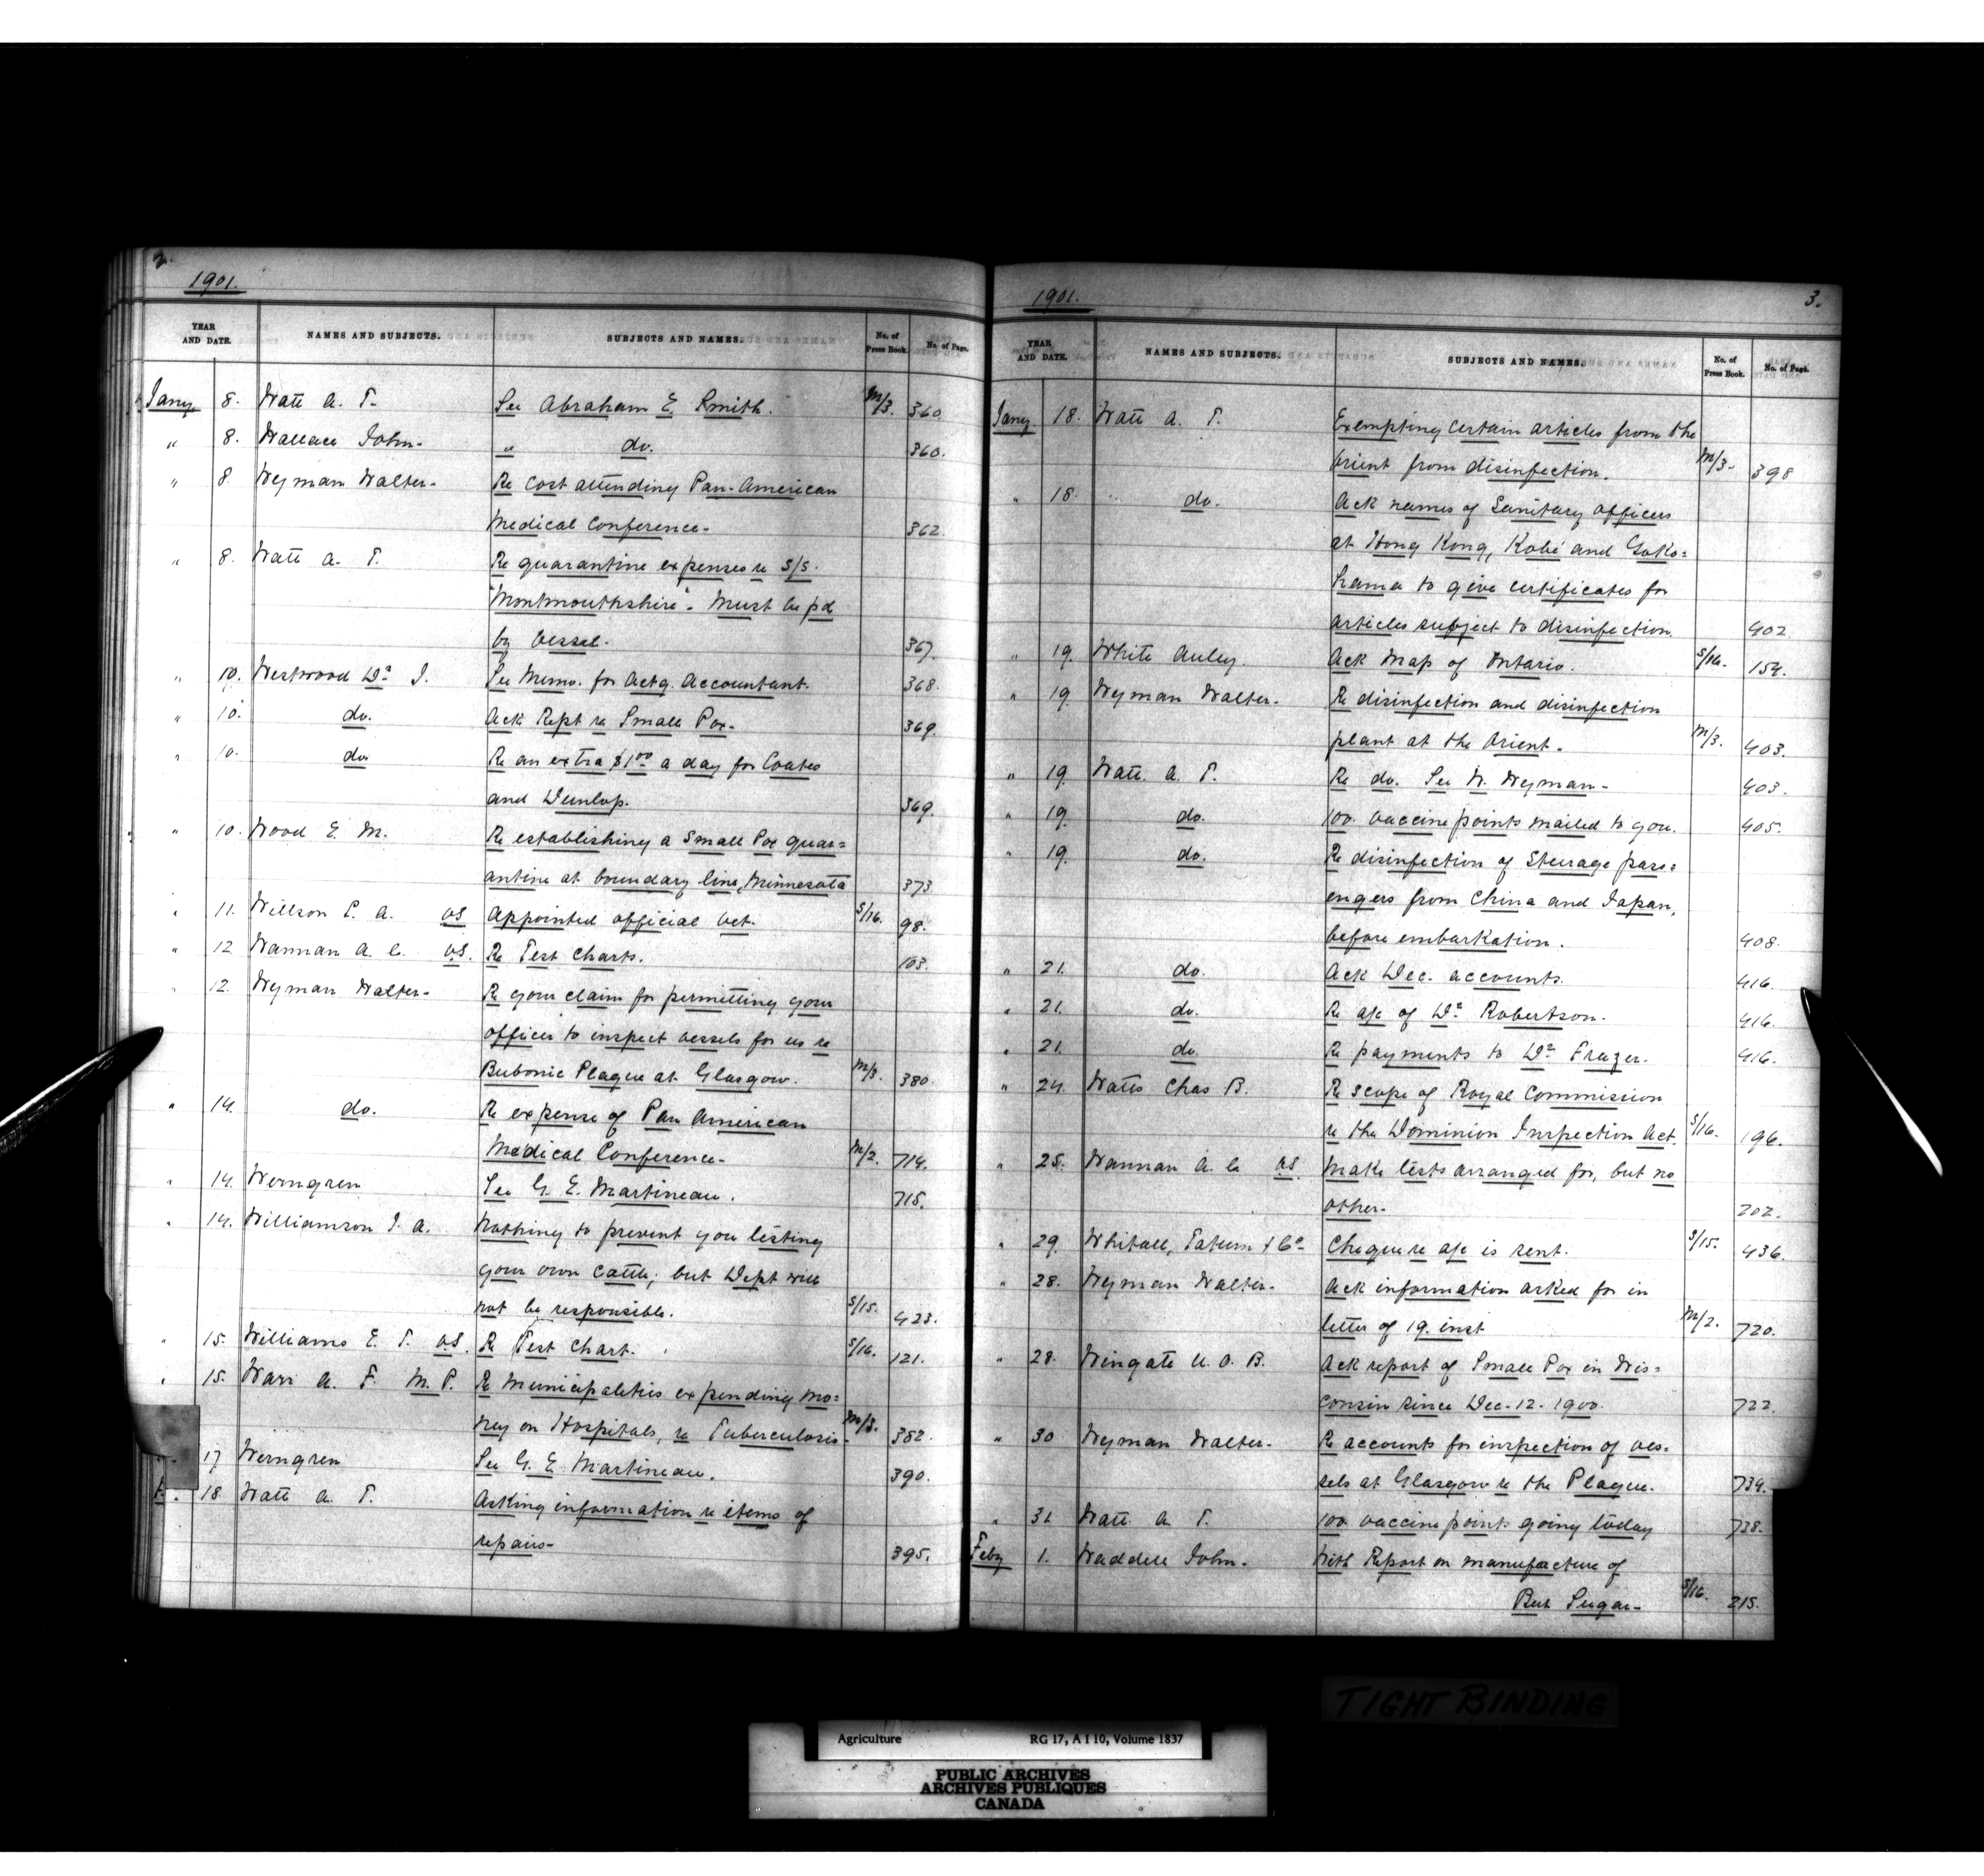 2.
1901.
YEAR AND DATE. NAMES AND SUBJECTS. SUBJECTS AND NAMES. No. of Press Book. No. of Page.
Jany. 8. Watt A. T. See Abraham E. Smith. M/3. 360.
" 8. Wallace John. " do. 360.
" 8. Wyman Walter. Re cost attending Pan-American
Medical Conference. 362.
" 8. Watt A. T. Re quarantine expenses re S/S.
"Montmouthshire". Must be pd
by vessel. 367.
" 10. Westwood Dr. J. See Memo. for Actg. Accountant. 368.
" 10. do. Ack Rept re Small Pox. 369.
" 10. do. Re an extra $1.00 a day for Coates
and Dunlop. 369.
" 10. Wood E. M. Re establishing a Small Pox quar=
antine at boundary line, Minnesota 373
" 11. Willson P. A. VS Appointed official Vet. S/16. 98.
" 12. Wannan A. C. VS. Re Test Charts. 103.
" 12. Wyman Walter. Re your claim for permitting your
officer to inspect vessels for us re
Bubonic Plague at Glasgow. M/3. 380.
" 14. do. Re expense of Pan American
Medical Conference. M/2. 714.
" 14. Werngren See G. E. Martineau. 715.
" 14. Williamson J. A. Nothing to prevent you testing
your own cattle; but Dept will
not be responsible. S/15. 423.
" 15. Williams E. T. VS. Re Test Chart. S/16. 121.
" 15. Warr A. F. M.P. Re Municipalities expending mo=
ney on Hospitals, re Tuberculosis. M/3. 382.
17 Werngren See G. E. Martineau. 390.
" 18. Watt A. T. Asking information re items of
repairs. 395.
1901. 3.
YEAR AND DATE. NAMES AND SUBJECTS. SUBJECTS AND NAMES. No. of Press Book. No. of Page.
Jany. 18. Watt A. T. Exempting certain articles from the
Orient from disinfection. M/3. 398
" 18. " do. Ack names of Sanitary officers
at Hong Kong, Kobé and Yoko=
hama to give certificates for
articles subject to disinfection. 402.
" 19. White Auley. Ack Map of Ontario. S/16. 154.
" 19. Wyman Walter. Re disinfection and disinfection
plant at the Orient. M/3. 403.
" 19. Watt. A. T. Re do. See W. Wyman. 403.
" 19. do. 100 vaccine points mailed to you. 405.
" 19. do. Re disinfection of Steerage pass=
engers from China and Japan,
before embarkation. 408.
" 21. do. Ack Dec. accounts. 416.
" 21. do. Re a/c of Dr. Robertson. 416.
" 21. do. Re payments to Dr. Frazer. 416.
" 24. Watts Chas B. Re scope of Royal Commission
re the Dominion Inspection Act. S/16. 196.
" 25. Wannan A. C. VS. Make tests arranged for, but no
other. 202.
" 29. Whitall, Tatum & Co. Cheque re a/c is sent. S/15. 436.
" 28. Wyman Walter. Ack information asked for in
letter of 19. inst M/2. 720.
" 28. Wingate U. O. B. Ack report of Small Pox in Wis=
consin since Dec. 12. 1900. 722.
" 30 Wyman Walter. Re accounts for inspection of ves=
sels at Glasgow re the Plague. 734.
" 31 Watt. A. T. 100 vaccine points going today 738.
Feby 1. Waddell John. With Report on manufacture of
Beet Sugar. S/16. 215.
TIGHT BINDING
Agriculture RG 17, A I 10, Volume 1837
PUBLIC ARCHIVES
ARCHIVES PUBLIQUES
CANADA